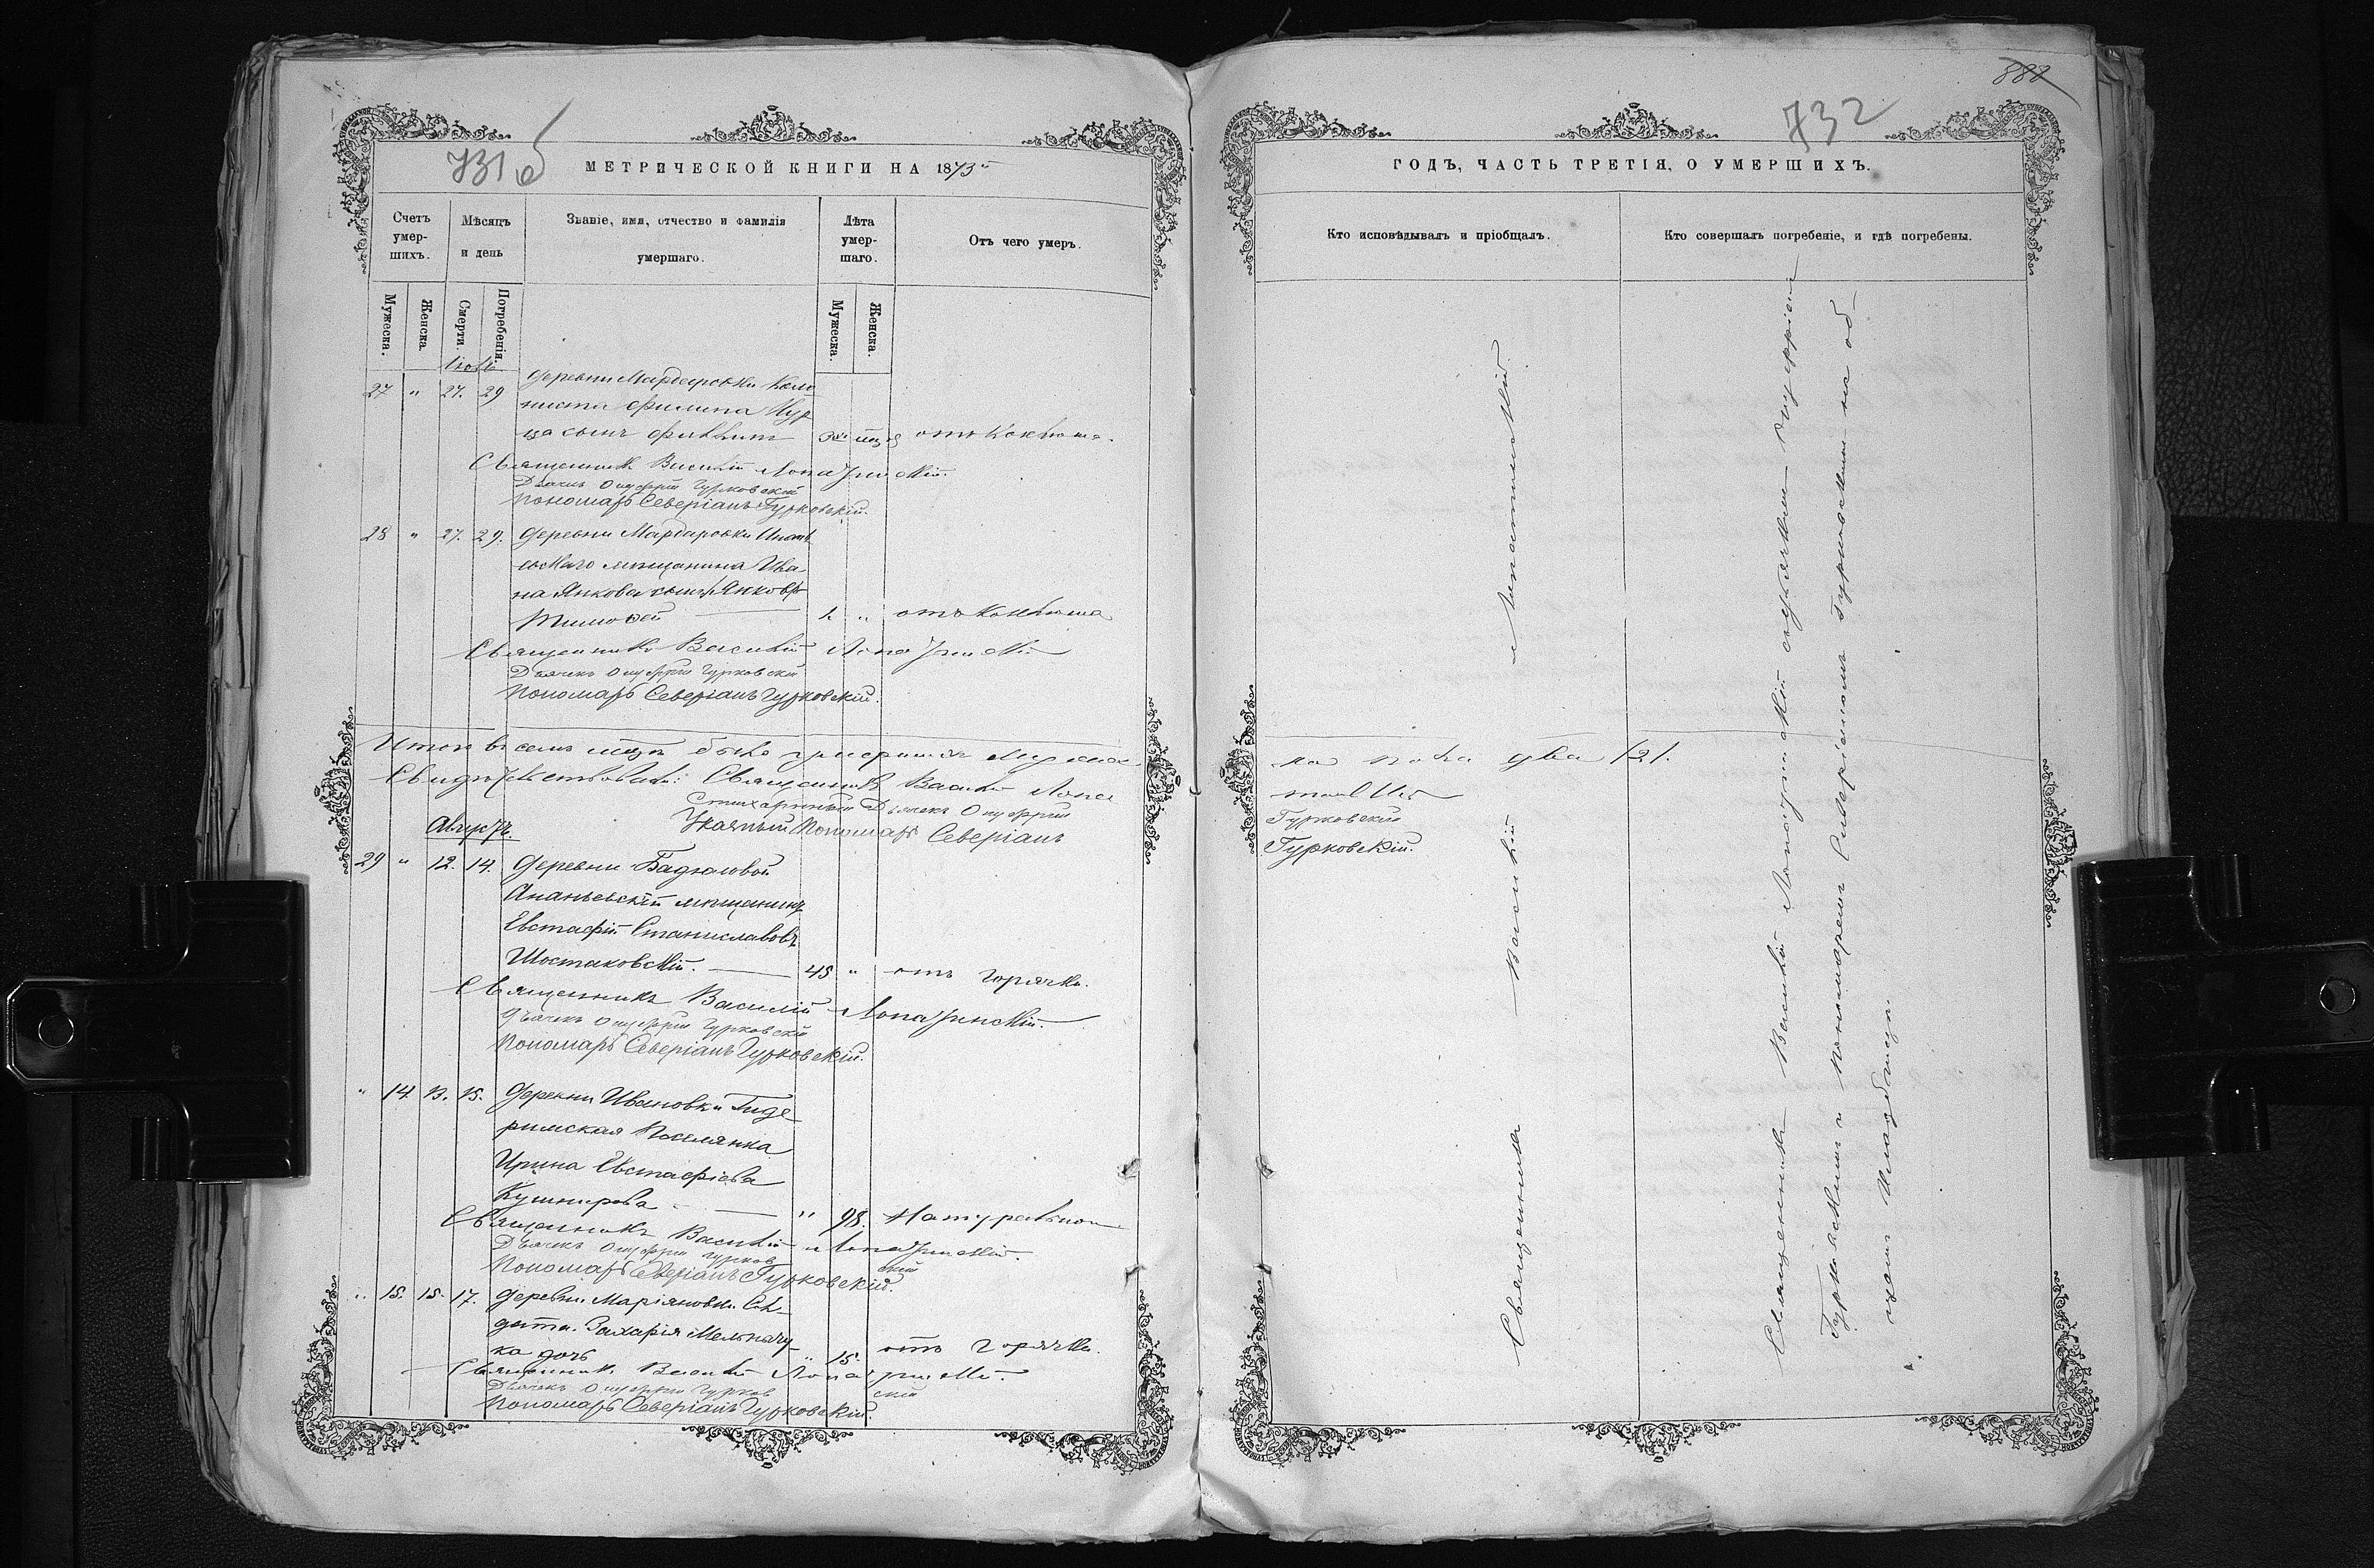 731 об
МЕТРИЧЕСКОЙ КНИГИ НА 1873й
Счетъ умер-шихъ.
Мѣсяцъ и день
Званіе, имя, отчество и фамилія умершаго.
Лѣта умер-шаго.
Отъ чего умеръ.
Мужеска.
Женска.
Смерти.
Погребенія.
Мужеска.
Женска.
Іюль
27 " 27. 29 Деревни Мардаровки коло
ниста Филипа
сынъ отъ коклюша.
Священникъ Василій Лопатинскій.
Дьячекъ Онуфрій Гурковскій
Пономарь Северіанъ Гурковскій.
28 " 27. 29. Деревни Мардаровки
мѣщанина Ива
на Янкова сынъ Янковъ
Тимофей " отъ коклюша
Священникъ Василій Лопатинскій
Дьячекъ Онуфрій Гурковскій
Пономарь Северіанъ Гурковскій.
Итого въ семъ мѣсяцѣ было умершихъ мужеска
Свидѣтельствовали: Священникъ Василій Лопа
Стихарный Дьячекъ Онуфрій
Указный Пономарь Северіанъ
Августъ.
29 " 12. 14. Деревни Бадюловой
Ананьевскій мѣщанинъ
Евстафій Станиславовъ
Шостаковскій. 45 " отъ горячки.
Священникъ Василій Лопатинскій.
Дьячекъ Онуфрій Гурковскій
Пономарь Северіанъ Гурковскій.
" 14 13. 15. Деревни Ивановки Гиде
римская поселянка
Ирина Евстафіева
Кушнирова " 98. Натуральною
Священникъ Василій Лопатинскій.
Дьячекъ Онуфрій Гурковскій
Пономарь Северіанъ Гурковскій.
" 15. 15. 17. Деревни Маріяновки Сол
дата Захарія Мельничу
ка дочь " 15. отъ горячки.
Священникъ Василій Лопатинскій.
Дьячекъ Онуфрій Гурковскій
Пономарь Северіанъ Гурковскій.
888
732
ГОДЪ, ЧАСТЬ ТРЕТІЯ, О УМЕРШИХЪ.
Кто исповѣдывалъ и пріобщалъ.
Кто совершалъ погребеніе, и гдѣ погребены.
ка пола два /2/.
тинскій
Гурковскій
Гурковскій.
Священникъ Василій Лопатинскій.
Священникъ Василій Лопатинскій съ дьячкомъ Онуфріемъ
Гурковскимъ и Пономаремъ Северіаномъ Гурковскимъ на об
щемъ кладбищѣ.